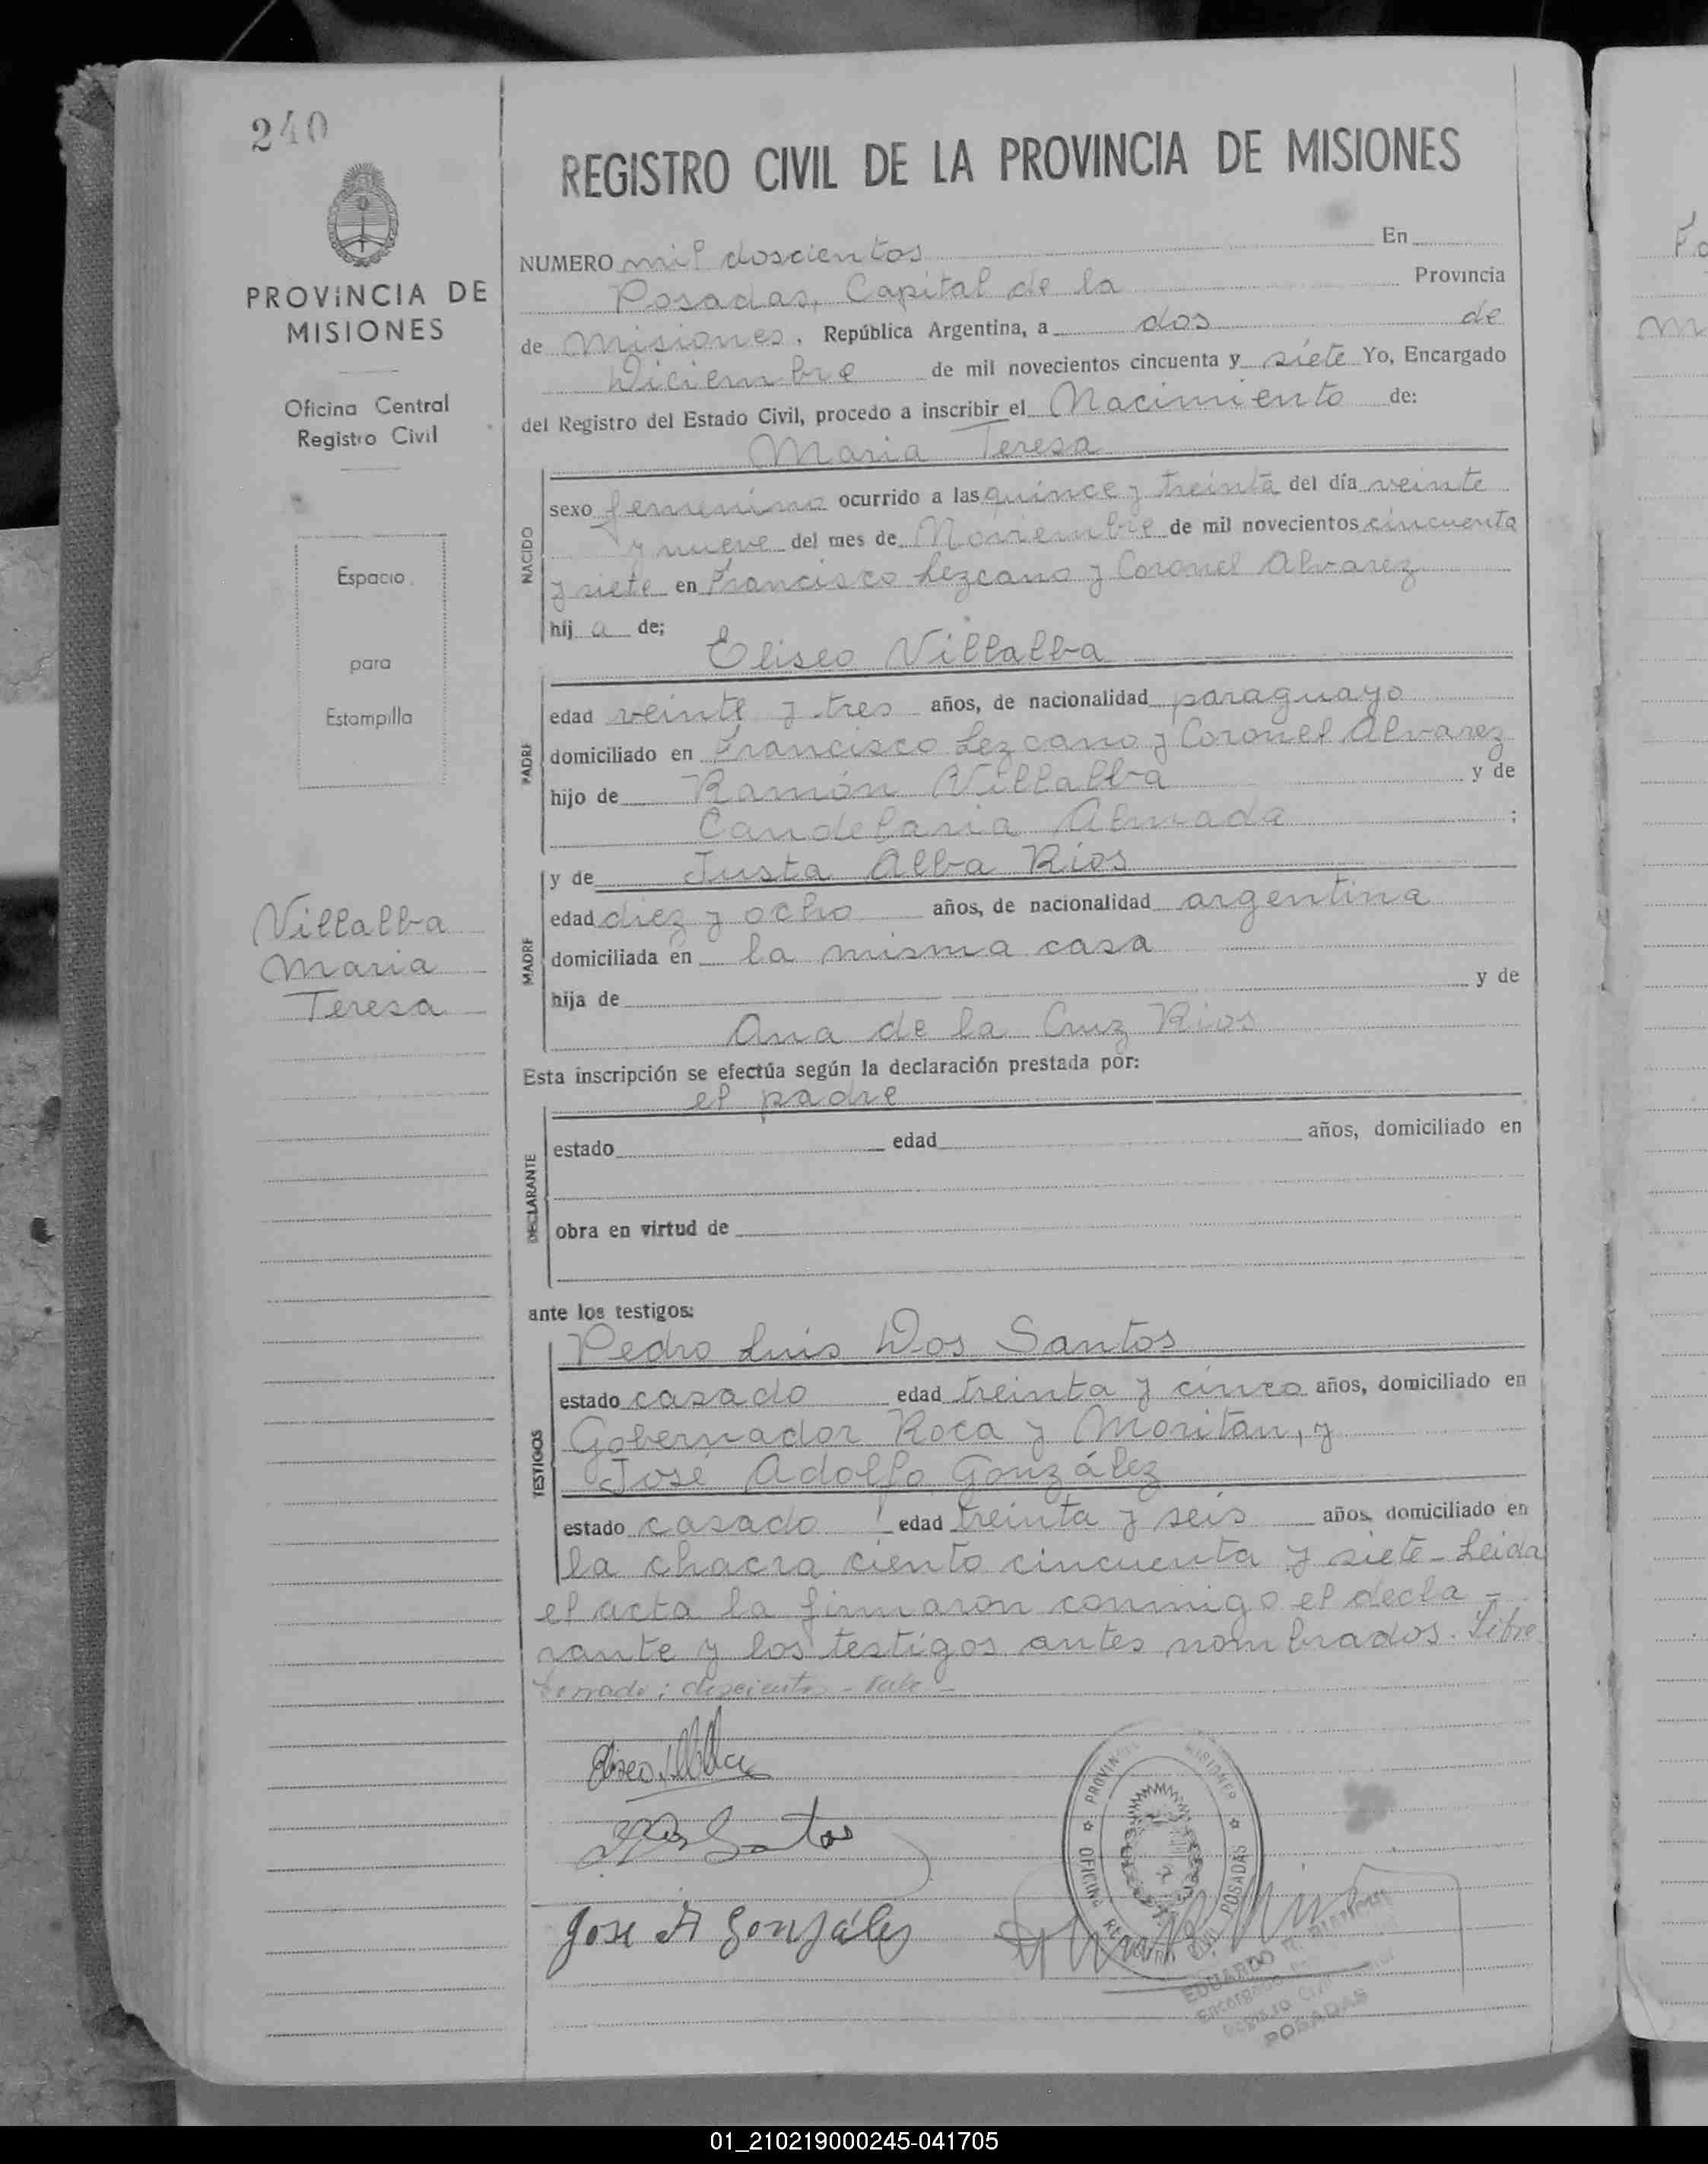 240
REGISTRO CIVIL DE LA PROVINCIA DE MISIONES
PROVINCIA DE
MISIONES
Oficina Central
Registro Civil
Espacio
para
Estampilla
Villalba
Maria
Teresa
NUMERO mil doscientos En
Posadas, Capital de la Provincia
de Misiones, República Argentina, a dos de
Diciembre de mil novecientos cincuenta y siete Yo, Encargado
del Registro del Estado Civil, procedo a inscribir el Nacimiento de:
Maria Teresa
NACIDO
sexo femenino ocurrido a las quince y treinta del día veinte
y nueve del mes de Noviembre de mil novecientos cincuenta
y siete en Francisco Lezcano y Coronel Alvarez
hij a de;
Eliseo Villalba
PADRE
edad veinte y tres años, de nacionalidad paraguayo
domiciliado en Francisco Lezcano y Coronel Alvarez
hijo de Ramón Villalba y de
Candelaria Almada ;
y de Justa Alba Rios
MADRE
edad diez y ocho años, de nacionalidad argentina
domiciliada en la misma casa
hija de y de
Ana de la Cruz Rios
Esta inscripción se efectúa según la declaración prestada por:
el padre
DECLARANTE
estado edad años, domiciliado en
obra en virtud de
ante los testigos:
Pedro Luis Dos Santos
TESTIGOS
estado casado edad treinta y cinco años, domiciliado en
Gobernador Roca y Moritan, y
José Adolfo González
estado casado edad treinta y seis años, domiciliado en
la chacra ciento cincuenta y siete - Leida
el acta la firmaron conmigo el decla-
rante y los testigos antes nombrados.
doscientos - Vale -
Eliseo Villalba
Dos Santos
Jose A Gonzáles
PROVINCIA MISIONES
OFICINA REGISTRO CIVIL POSADAS
EDUARDO
Encargado
Registro Civil
POSADAS
01_210219000245-041705